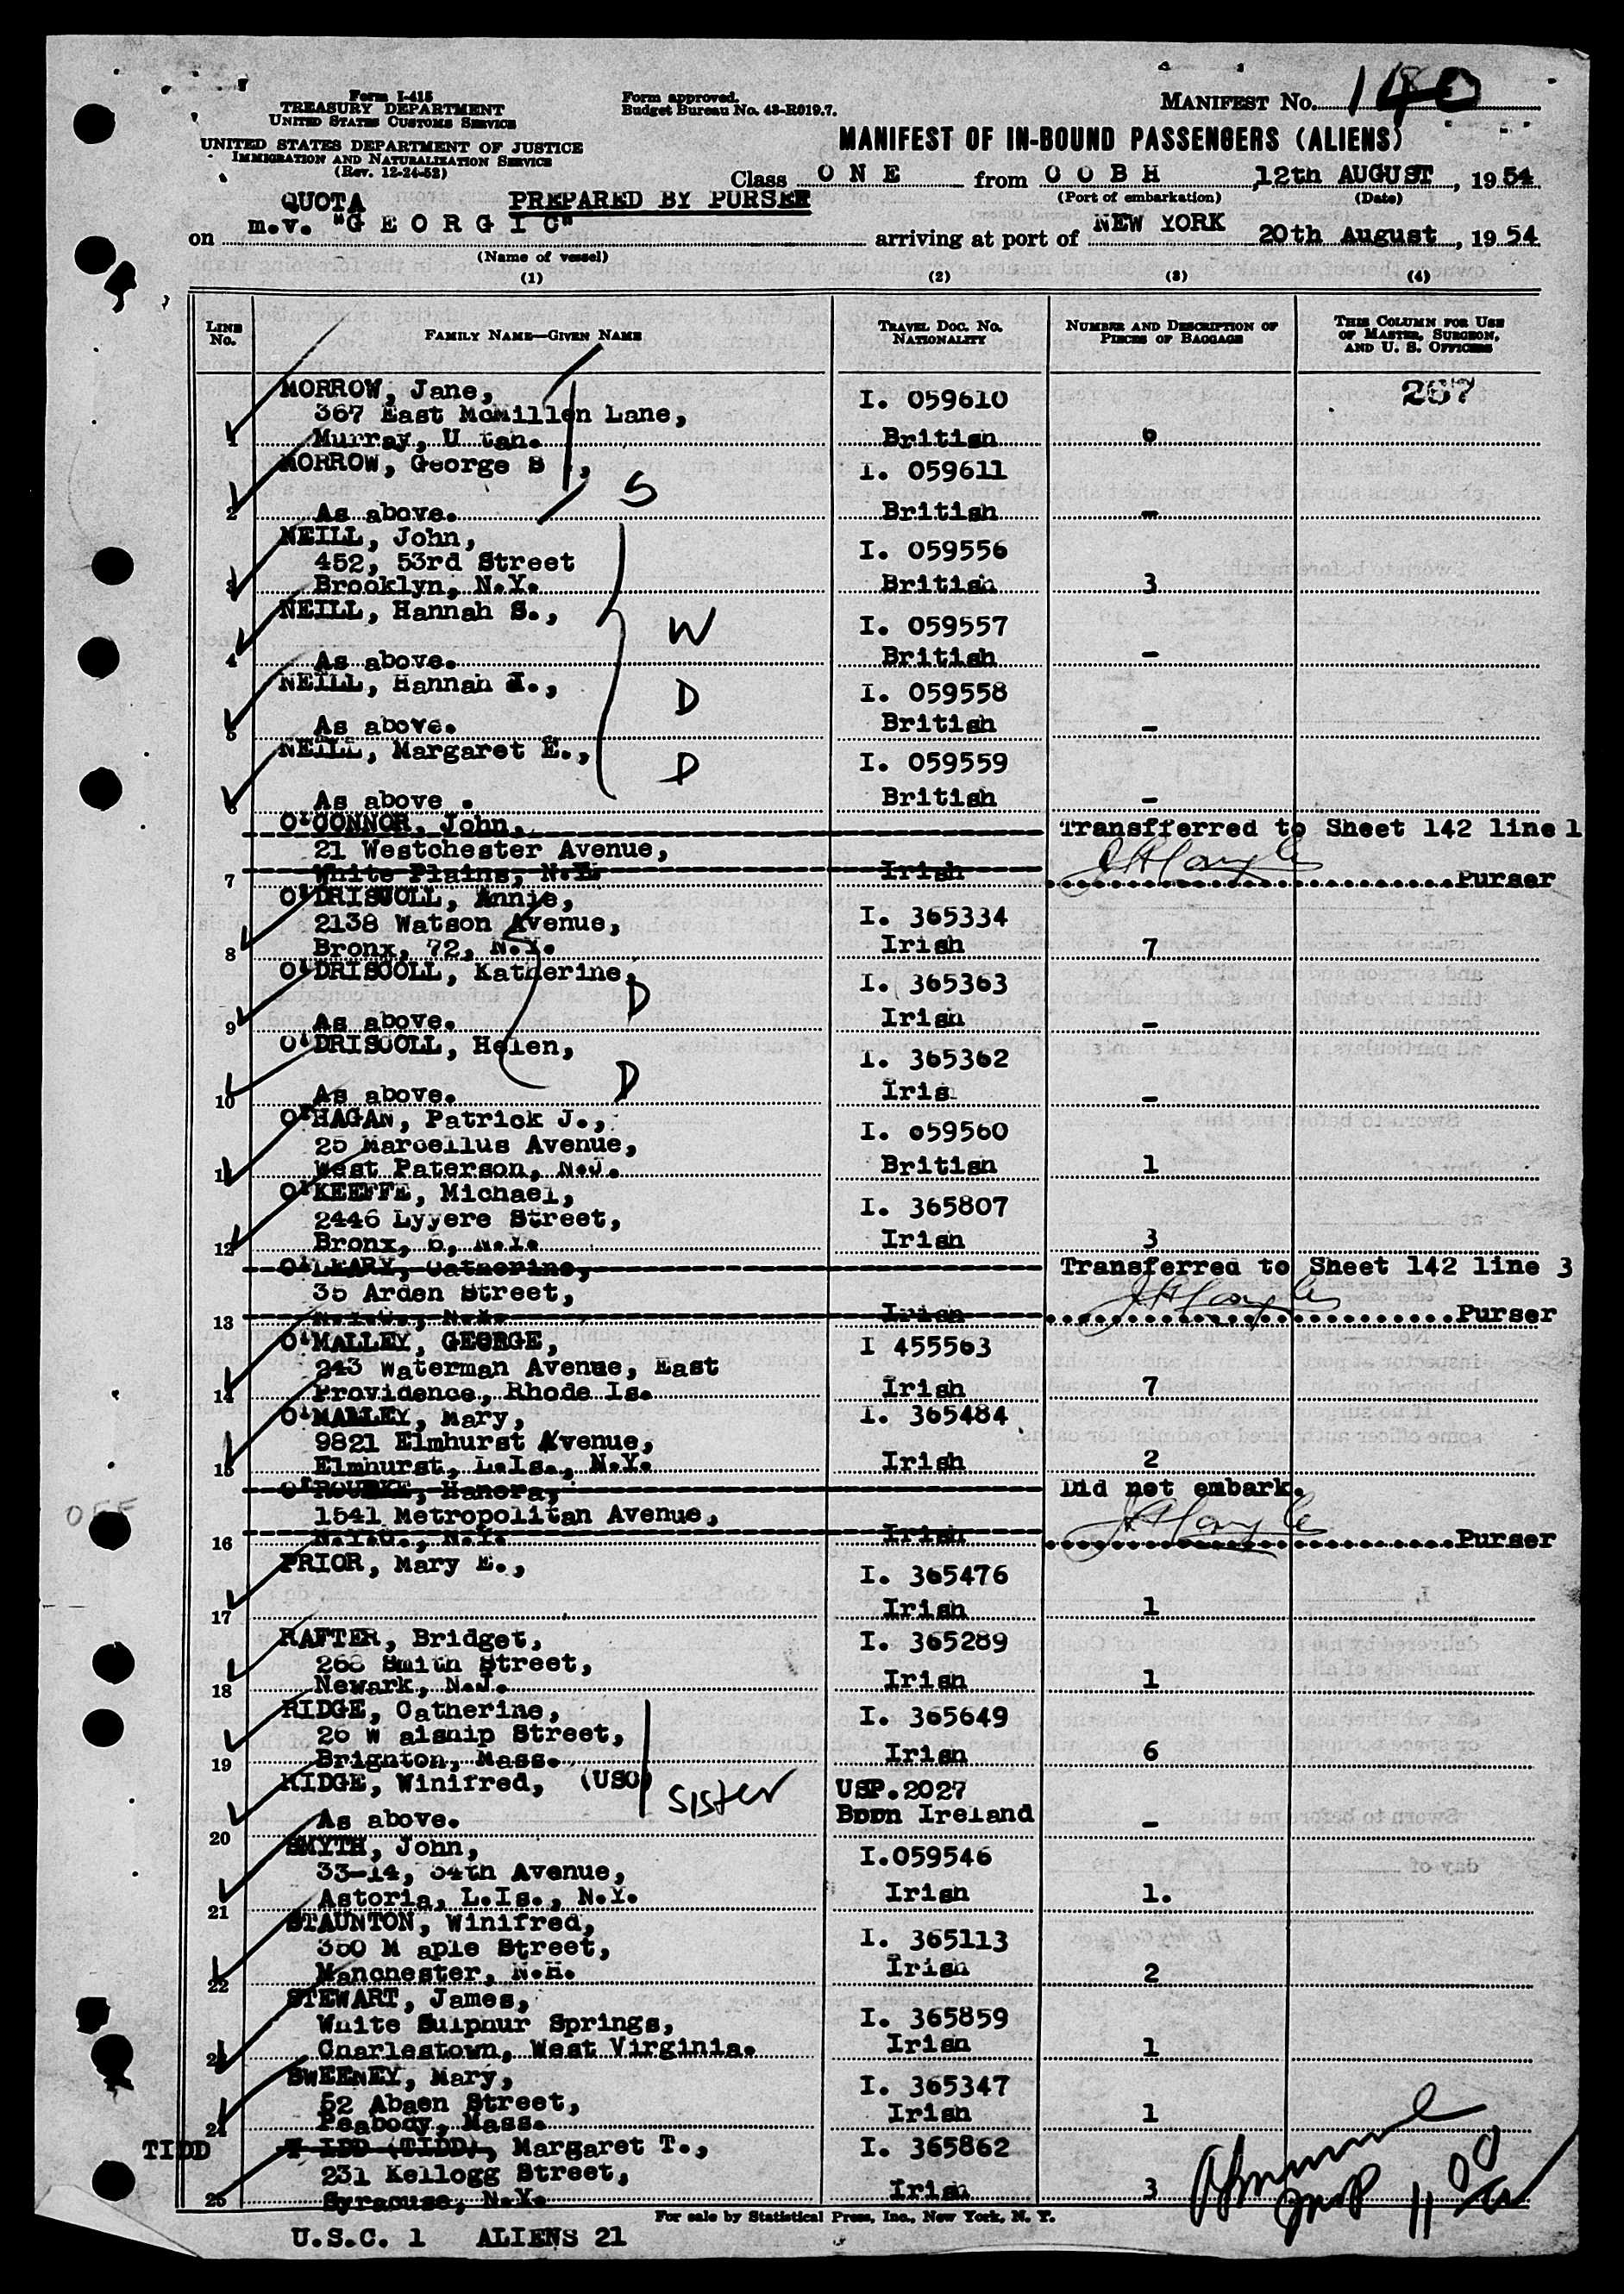 Form I-415
TREASURY DEPARTMENT
UNITED STATES CUSTOMS SERVICE
UNITED STATES DEPARTMENT OF JUSTICE
IMMIGRATION AND NATURALIZATION SERVICE
(Rev. 12-24-52)
Form approved.
Budget Bureau No. 43-R019.7.
MANIFEST NO. 140
MANIFEST OF IN-BOUND PASSENGERS (ALIENS)
Class O N E from C O B H, 12th AUGUST, 1954
(Port of embarkation) (Date)
QUOTA PREPARED BY PURSER
on m.v. "G E O R G I C" arriving at port of NEW YORK 20th August, 1954
(Name of vessel)
(1) (2) (3) (4)
LINE No. FAMILY NAME—GIVEN NAME TRAVEL DOC. NO. NATIONALITY NUMBER AND DESCRIPTION OF PIECES OF BAGGAGE THIS COLUMN FOR USE OF MASTER, SURGEON, AND U. S. OFFICERS
267
MORROW, Jane, I. 059610
367 East McMillen Lane,
1 Murray, U tah. British 6
MORROW, George S , I. 059611
S
2 As above. British -
NEILL, John, I. 059556
452, 53rd Street
3 Brooklyn, N.Y. British 3
NEILL, Hannah S., W I. 059557
4 As above. British -
NEILL, Hannah J., D I. 059558
5 As above. British -
NEILL, Margaret E., D I. 059559
6 As above . British -
O'CONNOR, John, Transfferred to Sheet 142 line 1
21 Westchester Avenue,
7 White Plains, N.Y. Irish Purser
O'DRISCOLL, Annie, I. 365334
2138 Watson Avenue,
8 Bronx, 72, N.Y. Irish 7
O'DRISCOLL, Katherine, D I. 365363
9 As above. Irish -
O'DRISCOLL, Helen, D I. 365362
10 As above. Iris -
O'HAGAN, Patrick J., I. 059560
25 Marcellus Avenue,
11 West Paterson, N.J. British 1
O'KEEFFE, Michael, I. 365807
2446 Lyyere Street,
12 Bronx, 6, N.Y. Irish 3
O'LEARY, Catherine, Transferred to Sheet 142 line 3
35 Arden Street,
13 N.Y.C., N.Y. Irish Purser
O'MALLEY, GEORGE, I 455563
243 Waterman Avenue, East
14 Providence, Rhode Is. Irish 7
O'MALLEY, Mary, I. 365484
9821 Elmhurst Avenue,
15 Elmhurst, L.Is., N.Y. Irish 2
O'ROURKE, Hanora, Did not embark.
1541 Metropolitan Avenue,
16 N.Y.C., N.Y. Irish Purser
PRIOR, Mary E., I. 365476
17 Irish 1
RAFTER, Bridget, I. 365289
268 Smith Street,
18 Newark, N.J. Irish 1
RIDGE, Catherine, I. 365649
26 W alship Street,
19 Brighton, Mass. Irish 6
RIDGE, Winifred, (USC) sister USP.2027
20 As above. Born Ireland -
SMYTH, John, I.059546
33-14, 34th Avenue,
21 Astoria, L.Is., N.Y. Irish 1.
STAUNTON, Winifred, I. 365113
350 M aple Street,
22 Manchester, N.H. Irish 2
STEWART, James, I. 365859
White Sulphur Springs,
23 Charlestown, West Virginia. Irish 1
SWEENEY, Mary, I. 365347
52 Aben Street,
24 Peabody, Mass. Irish 1
TIDD T IDD (TIDD), Margaret T., I. 365862
231 Kellogg Street,
25 Syracuse, N.Y. Irish 3
For sale by Statistical Press, Inc., New York, N. Y.
U.S.C. 1 ALIENS 21